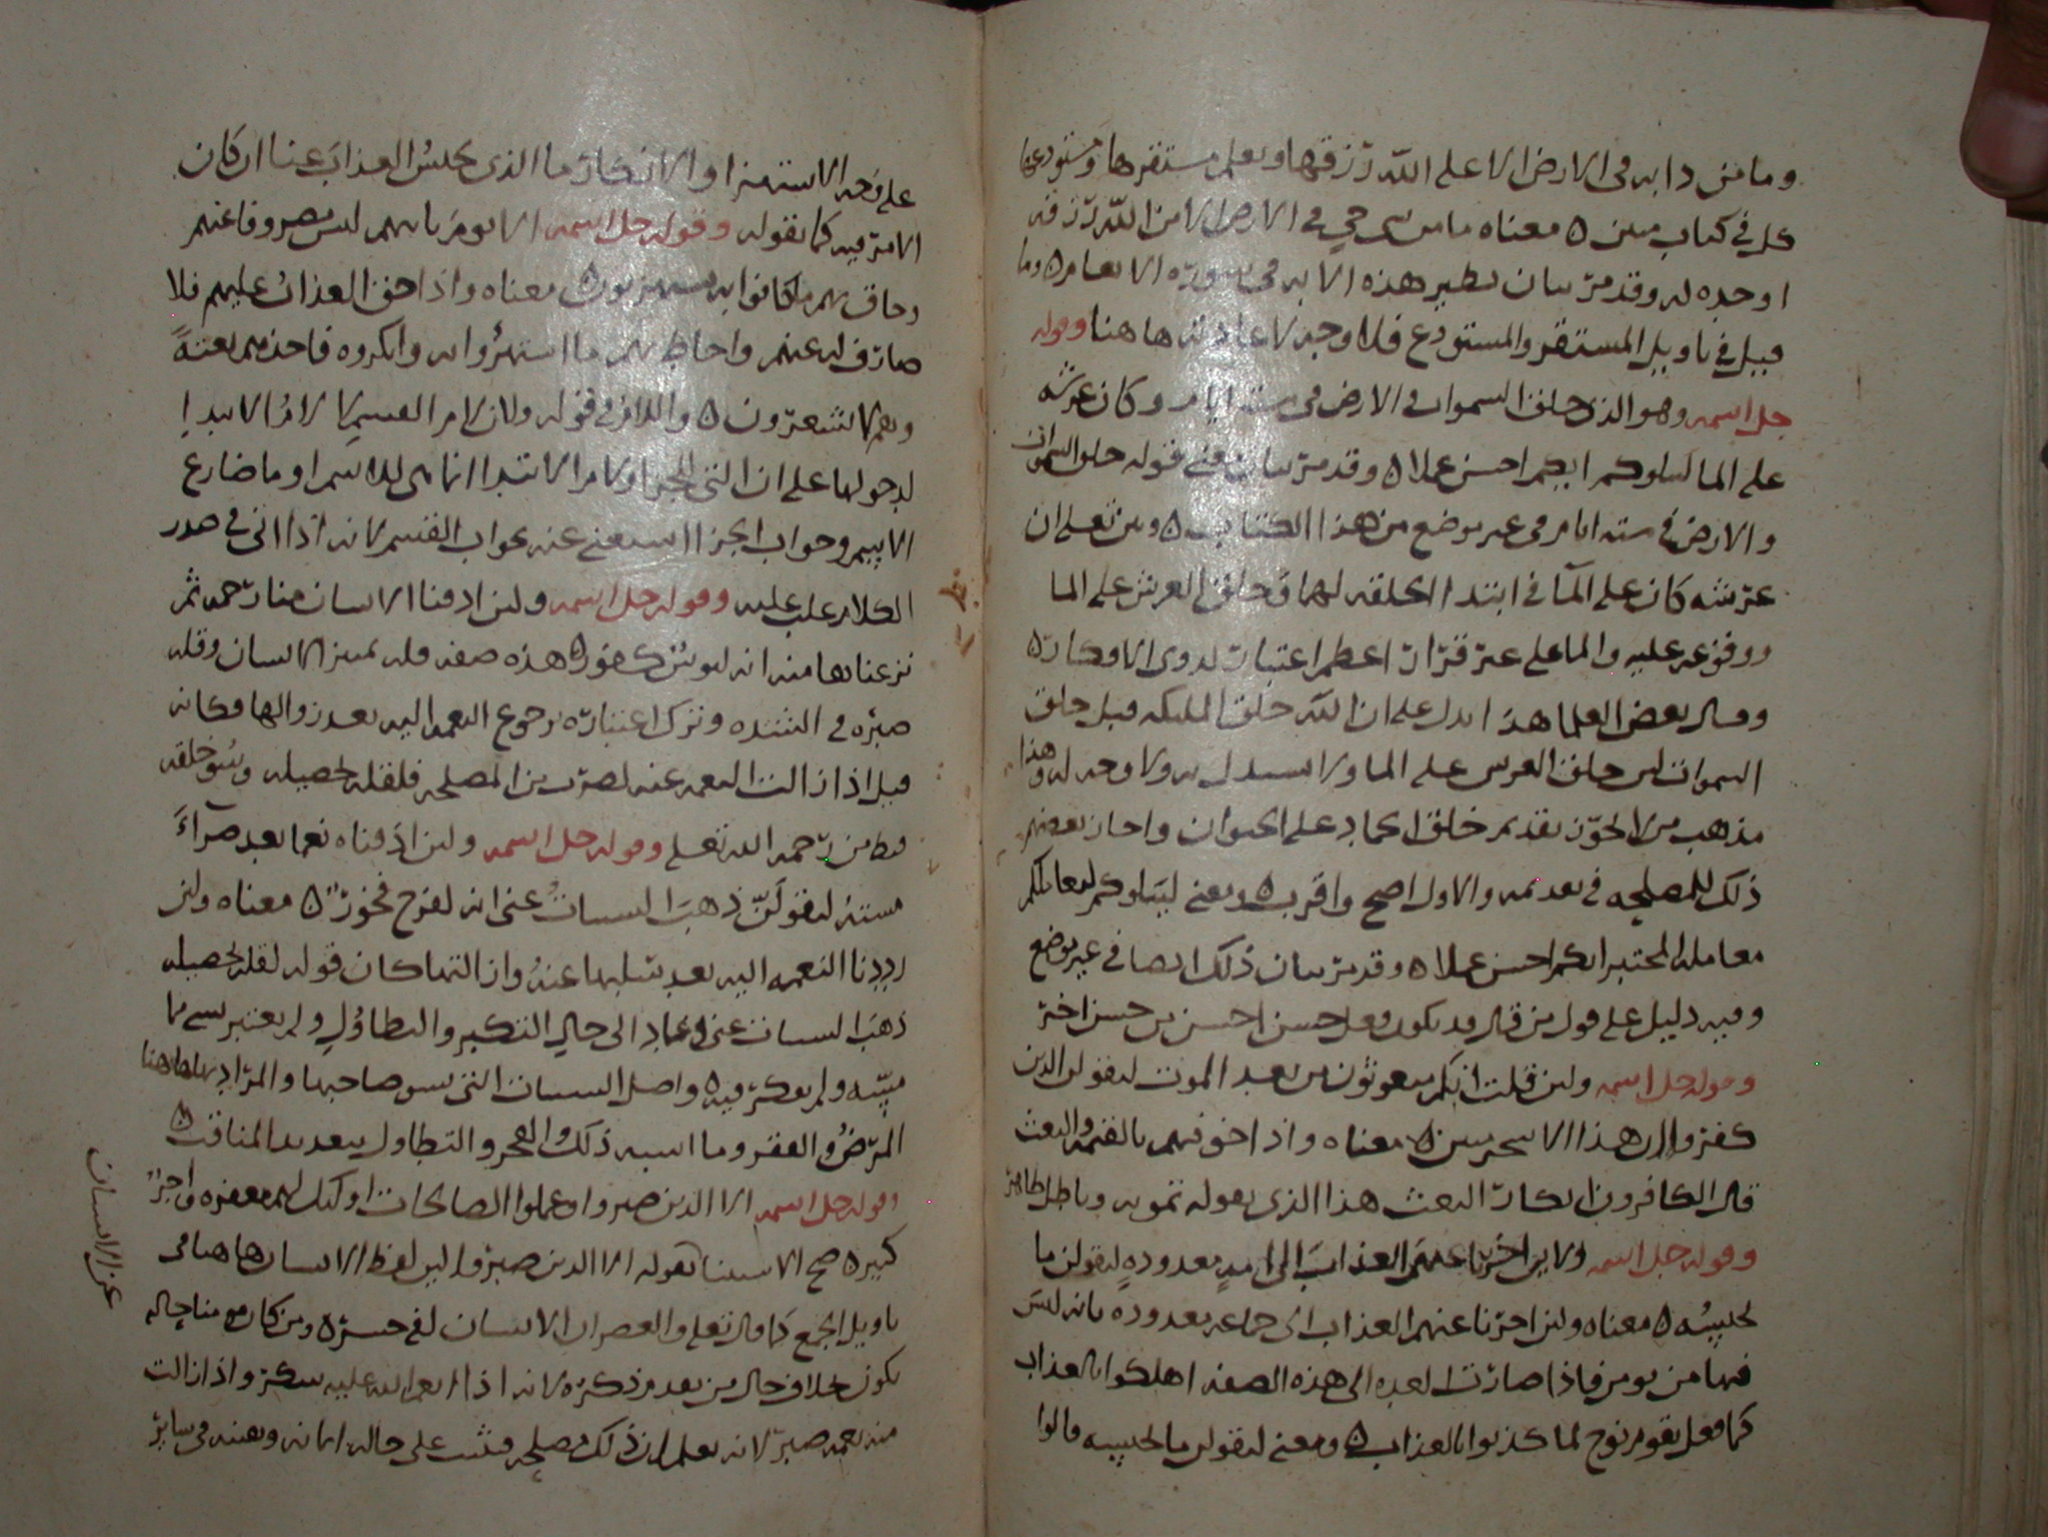 وما من دابه فى الارض الا على الله رزقها ويعلم مستقرها ومستودعها
كل فى كتاب مبين ٥ معناه ما من شى حي فى الارض الا من الله رزقه
اوجده له وقد مرّ بيان نظير هذه الايه فى سوره الانعام ٥ وما
قيل فى تاويل المستقر والمستودع فلا وجه لاعادته هاهنا وقوله
جل اسمه وهو الذى خلق السموات والارض فى سته ايام وكان عرشه
على الما ليبلوكم ايكم احسن عملا ٥ وقد مرّ بيان معنى قوله خلق السموات
والارض فى سته ايام فى غير موضع من هذا الكتاب ٥ وبين تعلى ان
عرشه كان على المآ فى ابتدا الخلقه لهما فخلق العرش على الما
ووقوعه عليه والما على غير قرار اعظم اعتبار لذوى الافكار ٥
وقال بعض العلما هذا يدل على ان الله خلق المليكه قبل خلق
السموات لان خلق العرش على الما ولا مستدل به ولا وجه له وهذا
مذهب من لا يجوّز تقديم خلق الجماد على الحيوان واجاز بعضهم
ذلك للمصلحه فى تقدمه والاول اصح واقرب ٥ ومعنى ليبلوكم ليعاملكم
معامله المختبر ايكم احسن عملا ٥ وقد مرّ بيان ذلك ايضا فى غير موضع
وفيه دليل على قول من قال قد يكون فعل حسن احسن من حسن اخرّ
وقوله جل اسمه ولين قلت انكم مبعوثون من بعد الموت ليقولن الذين
كفروا ان هذا الا سحر مبين ٥ معناه واذا خوفتهم بالقيمه والبعث
قال الكافرون انكار البعث هذا الذى يقوله تمويه وباطل ظاهر
وقوله جل اسمه ولاين اخرنا عنهم العذاب الى امهٍ معدودهٍ ليقولن ما
يحبسُه ٥ معناه ولين اخرّنا عنهم العذاب الى جماعه معدوده بانه ليس
فيها من يومن فاذا صارت العده الى هذه الصفه اهلكوا بالعذاب
كما فعل بقوم نوح لما كذبوا بالعذاب ٥ ومعنى ليقولن ما يحبسه قالوا
على وجه الاستهزا والانكار ما الذى يحبسُ العذاب عنا ان كان
الامر فيه كما تقوله وقوله جل اسمه الا يوم ياتيهم ليس مصروفا عنهم
وحاق بهم ما كانوا به يستهزيون ٥ معناه واذا حق العذاب عليهم فلا
صارف له عنهم واحاط بهم ما استهزُوا به وانكروه فاخذهم بغتةً
وهم لا يشعرون ٥ واللام فى قوله ولان لام القسم لا لامُ الابتدا
لدخولها على ان التى للجزا ولام الابتدا انما هى للاسم او ما ضارع
الاسم وجواب الجزا استغنى عنه بجواب القسم لانه اذا اتى فى صدر
الكلام غلب عليه وقوله جل اسمه ولين اذقنا الانسان منا رحمه ثم
نزعناها منه انه ليوسٌ كفور ٥ هذه صفه قله تمييز الانسان وقله
صبرّه فى الشده وترك اعتباره برجوع النعمه اليه بعد زوالها فكانه
قيل اذا زالت النعمه عنه لضرب من المصلحه فلقله تحصيله وسُو خلقه
قنط من رحمه الله تعلى وقوله جل اسمه ولين اذقناه نعما بعد ضرآءَ
مسته ليقولَنّ ذهبَ السيياتُ عنى انه لفرح فخورٌ ٥ معناه ولين
رددنا النعمه اليه بعد سَلبها عنهُ وازالتها كان قوله لقله تحصيله
ذهبَ السييات عنى وعاد الى حال التكبر والتطاوُل ولم يعتبر بسى مما
مسّه ولم يفكرّ فيه ٥ واصل السييات التى تسو صاحبها والمرّاد بها هاهنا
المرَضُ والفقر وما اشبه ذلك والفخر والتطاول بتعديد المناقب ٥
وقوله جل اسمه الا الذين صبروا وعملوا الصالحات اوليك لهم مغفره واجرٌ
كبير ٥ صح الاستثنا بقوله الا الذين صبروا لان لفظ الانسان هاهنا فى
تاويل الجمع كما قال تعلى والعصر ان الانسان لفى خسر ٥ ومن كان مومنا حاله
يكون بخلاف حال من تقدم ذكره لانه اذا انعم الله عليه شكرَ واذا زالت
منه نعمه صبرَ لانه يعلم ان ذلك مصلحه فثبت على حاله ايمانه ويقينه فى ساير